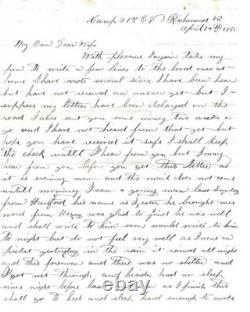 Camp 21st C.V. Richmond Va
April 14th 1865
My Own Dear Wife
With pleasure I again take my
pen to write a few lines to the loved ones at
home I have wrote several since I have been here
but have not received an answer yet but I
suppose my letters have been delayed on the
road I also sent you some money two weeks a
go and I have not heard from that yet but
hope you have received it safe I shall keep
the check until I hear from you but I may
hear from you before you get this letter as
it is evening now and the mail does not come
until morning I saw a young man last Sunday
from Hartford his name is he brought me
word from was glad to hear he was well
and shall write to him soon would write to him
to night but do not feel very well as I was on
picket yesterday in the rain it rained all night
and this forenoon and there was no shelter and
I got wet through and besides had no sleep
since night before last so as I finish this
shall go to bed and sleep hard enough to make